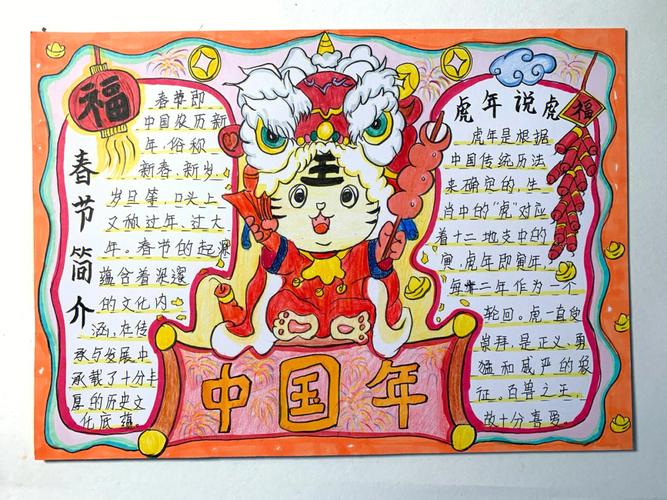 福
春节简介
春节即
中国农历新
年，俗称
新春、新岁、
岁旦等，口头上
又称过年、过大
年。春节的起源
蕴含着深邃
的文化内
涵，在传
承与发展中
承载了十分丰
厚的历史文
化底蕴。
王
中国年
虎年说虎
福
虎年是根据
中国传统历法
来确定的，生
肖中的“虎”对应
着十二地支中的
寅，虎年即寅年，
每十二年作为一个
轮回。虎一直受
崇拜，是正义、勇
猛和威严的象
征。百兽之王，
故十分喜爱。